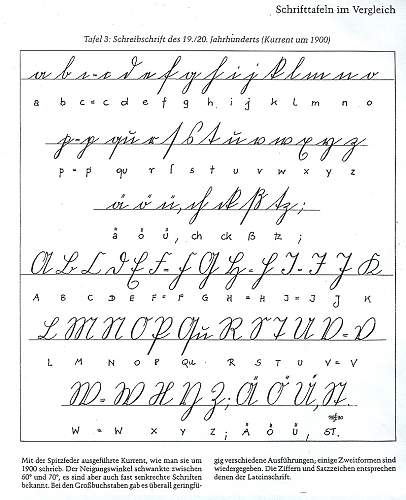 Schrifttafeln im Vergleich
Tafel 3: Schreibschrift des 19./20. Jahrhunderts (Kurrent um 1900)
a b c = c d e f g h i j k l m n o
a b c = c d e f g h i j k l m n o
p = p qu r ſ s t u v w x y z
p = p qu r ſ s t u v w x y z
ä ö ü, ch ck ß tz ;
ä ö ü, ch ck ß tz ;
A B C D E F = F G H = H I = I J K
A B C D E F = F G H = H I = I J K
L M N O P Qu R S T U V = V
L M N O P Qu R S T U V = V
W = W X Y Z ; Ä Ö Ü, St.
W = W X Y Z ; Ä Ö Ü, ST.
Mit der Spitzfeder ausgeführte Kurrent, wie man sie um
1900 schrieb. Der Neigungswinkel schwankte zwischen
60° und 70°, es sind aber auch fast senkrechte Schriften
bekannt. Bei den Großbuchstaben gab es überall geringfü-
gig verschiedene Ausführungen; einige Zweitformen sind
wiedergegeben. Die Ziffern und Satzzeichen entsprechen
denen der Lateinschrift.